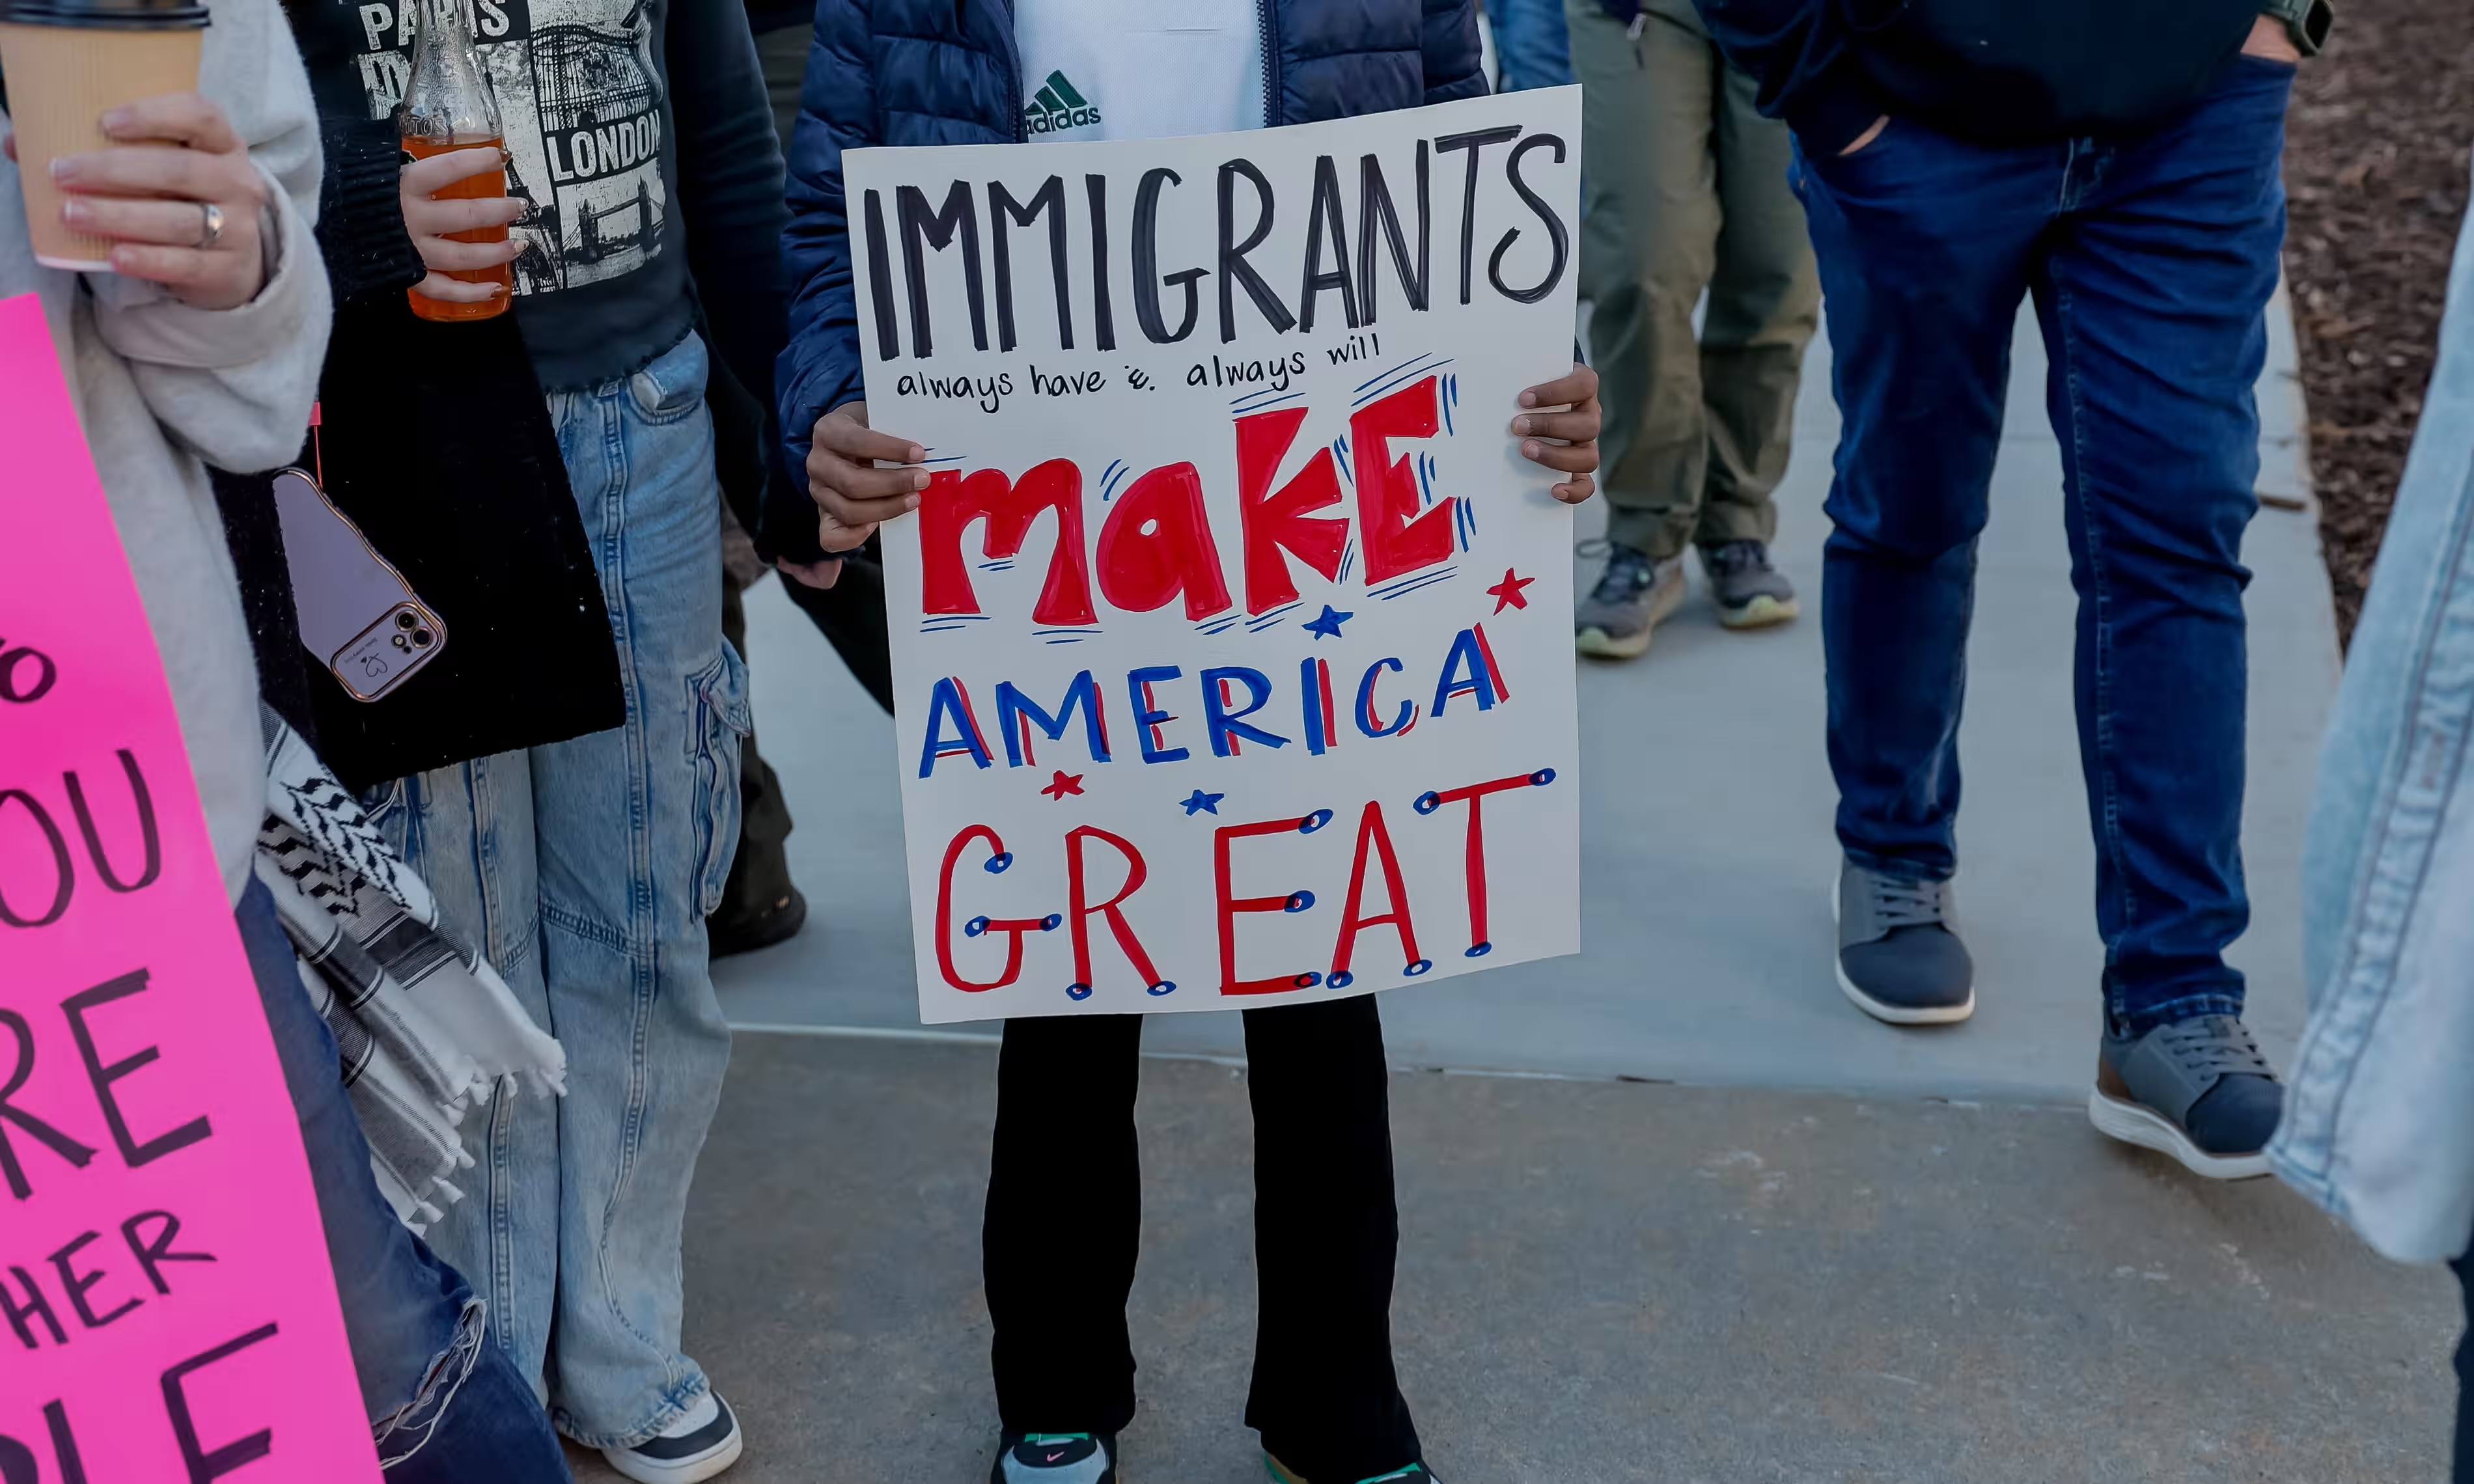 PARIS
LONDON
adidas
IMMIGRANTS
always have & always will
maKE
AMERICA
GREAT
OU
RE
HER